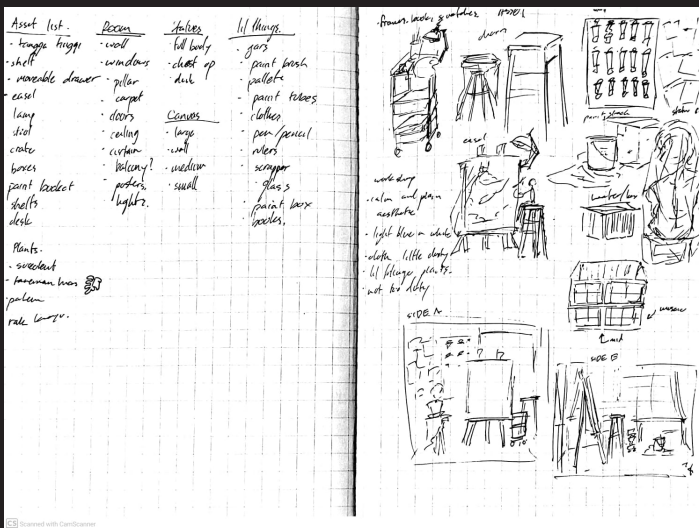 Asset list.
• tangga tinggi
• shelf
• moveable drawer
• easel
lamp
stool
crate
boxes
paint bucket
shelfs
desk
Plants.
• succulent
rak
Room
• wall
• windows
• pillar
• carpet
• doors
• ceiling
• curtain
• balcony?
• posters.
lights.
Statues
• full body
• chest up
• dusk
Canvas
• large
• wall
• medium
• small
lil things.
• jars
• paint brush
• pallete
• paint tubes
• clothes
• pen/pencil
• rulers
• scrapper
• glass
• paint box
books.
easel
workshop
• calm and plain
aesthetic
• light blue n white
• cloth little dusty
• lil foliage plants.
• not too dirty
SIDE A
SIDE B
CS Scanned with CamScanner